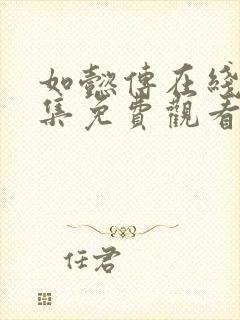 如懿傳在綫
集免費觀看
任君